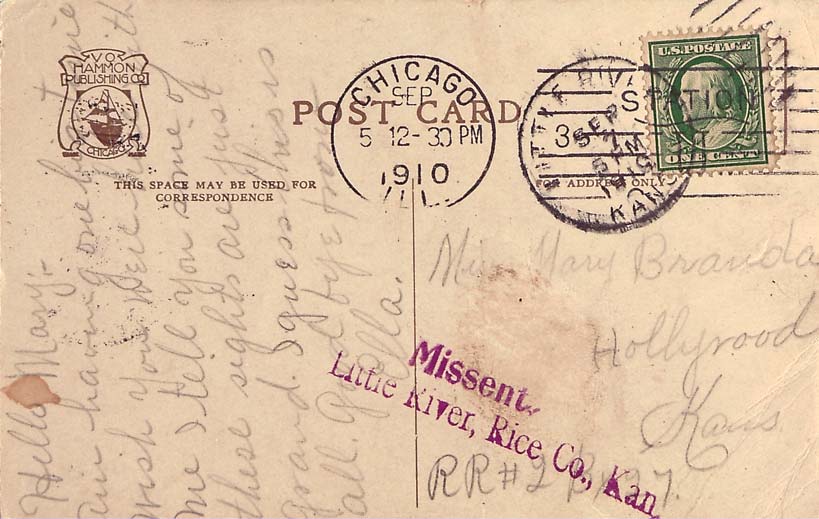 V.O.
HAMMON
PUBLISHING CO
CHICAGO
POST CARD
THIS SPACE MAY BE USED FOR
CORRESPONDENCE
FOR ADDRESS ONLY
CHICAGO
SEP
5 12-30 PM
1910
ILL.
LITTLE RIVER
SEP
7
1910
KAN
STATION
3
U.S. POSTAGE
ONE CENT
Hello Mary:-
am having one time
Wish you were with
me I tell you some of
these sights are just
grand. I guess this is
all. Good bye from
Ella.
Miss Mary Branda
Hollyrood
Kans.
RR#2 B
Missent.
Little River, Rice, Co., Kan.